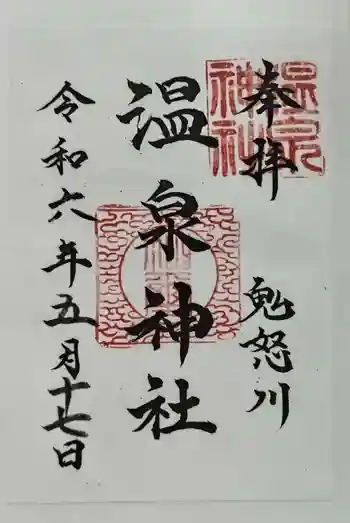 奉拝
鬼怒川
温泉神社
令和六年五月十七日